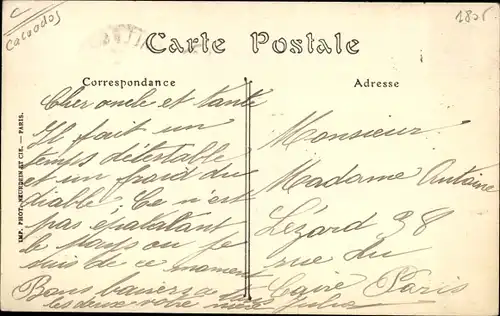 Calvados
1825
Carte Postale
Correspondance
Adresse
IMP. PHOT. NEURDEIN ET CIE. — PARIS.
Cher oncle et tante
Il fait un
temps détestable
et un froid du
diable; Ce n'est
pas épatatant
le pays ou je
suis de ce moment
Bons baisers a
les deux votre Jules
Monsieur
Madame Antoine
Lézard 38
rue du
Caire Paris